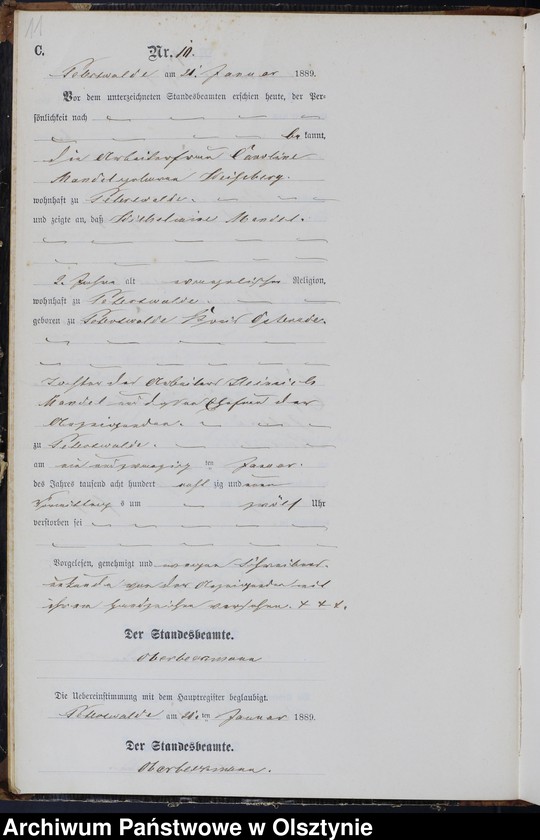 11
C. Nr. 10.
Peterswalde am 21. Januar 1889.
Vor dem unterzeichneten Standesbeamten erschien heute, der Per-
sönlichkeit nach
be kannt,
die Arbeiterfrau Caroline
Mandel geborene
wohnhaft zu Peterswalde.
und zeigte an, daß Wilhelmine Mandel.
2. Jahre alt evangelischer Religion,
wohnhaft zu Peterswalde
geboren zu Peterswalde Kreis Osterode.
Tochter des Arbeiters Heinrich
Mandel und dessen Ehefrau der
Anzeigenden.
zu Peterswalde.
am ein und zwanzig ten Januar.
des Jahres tausend acht hundert acht zig und neun
Vormittags um zwölf Uhr
verstorben sei
Vorgelesen, genehmigt und wegen Schreibens-
unkunde von der Anzeigenden mit
ihrem Handzeichen versehen. + + +.
Der Standesbeamte.
Die Uebereinstimmung mit dem Hauptregister beglaubigt.
Peterswalde am 21. ten Januar 1889.
Der Standesbeamte.
Archiwum Państwowe w Olsztynie